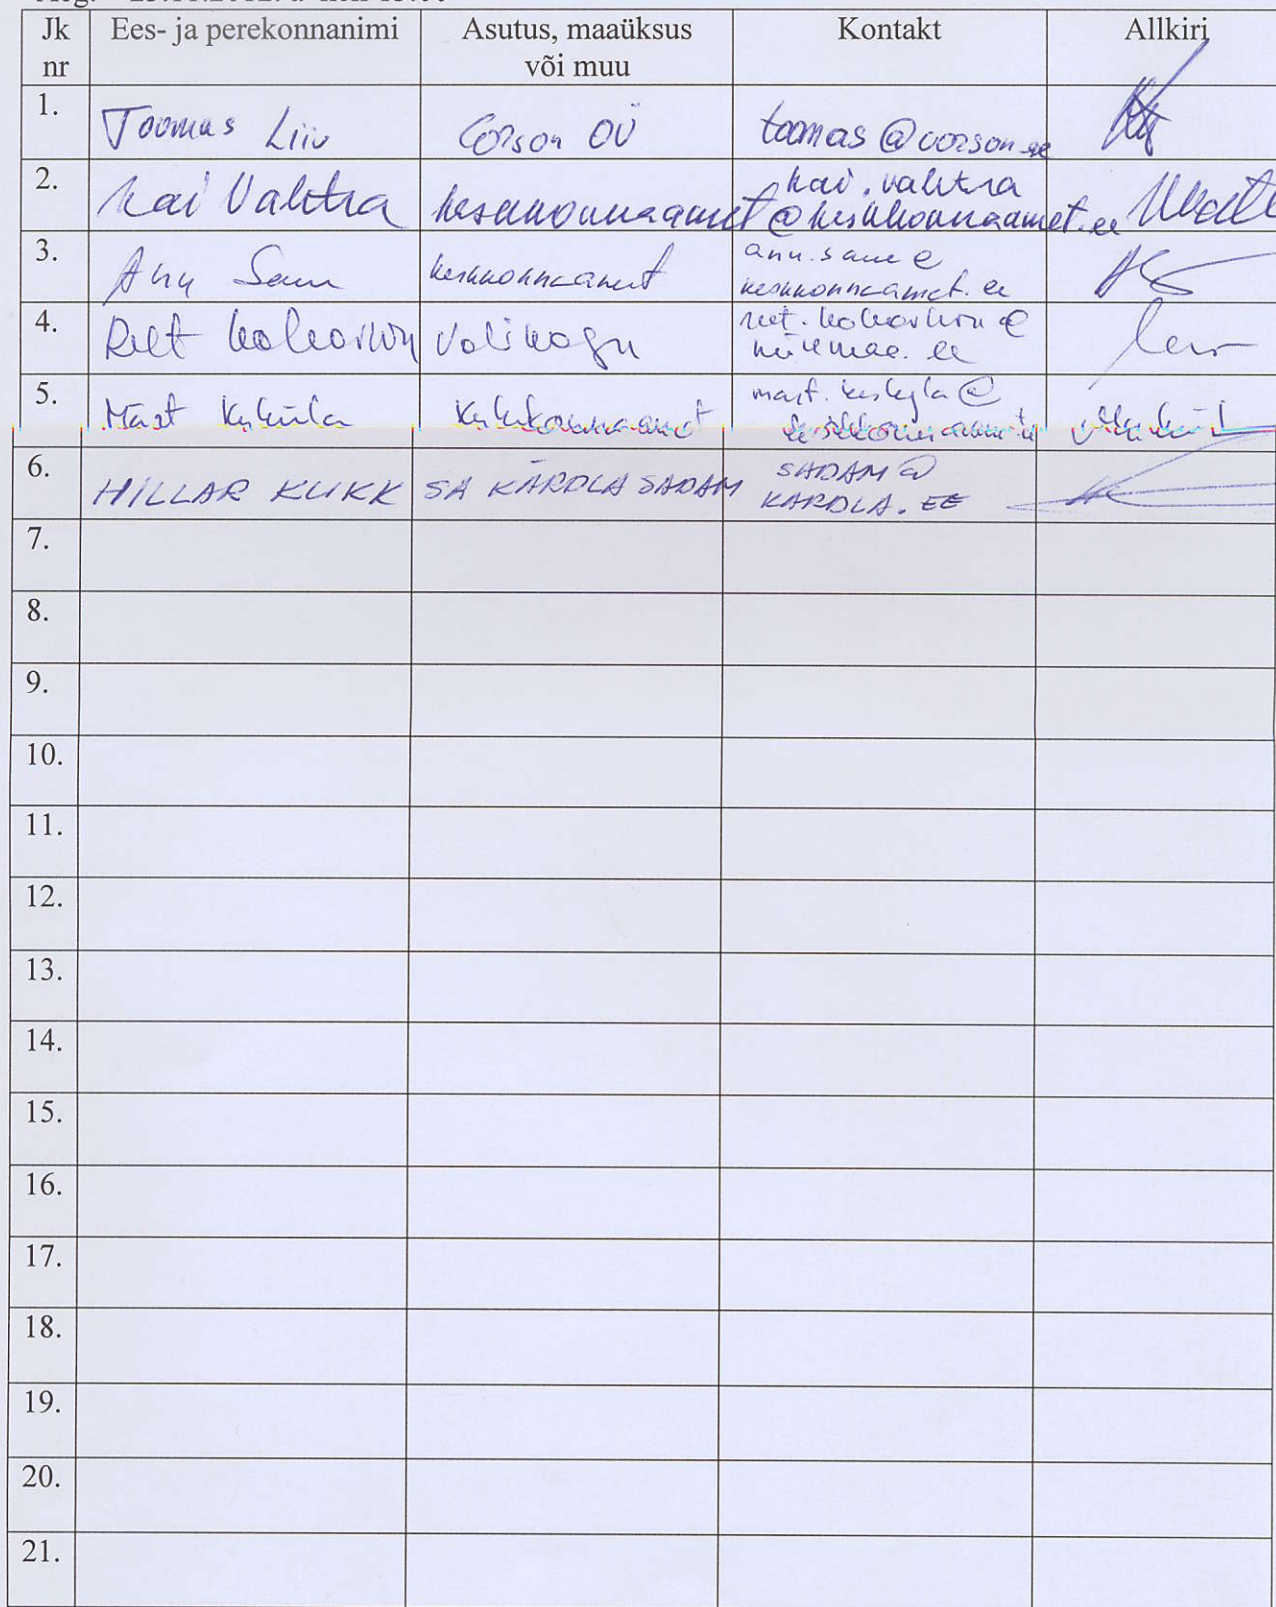 Jk nr | Ees- ja perekonnanimi | Asutus, maaüksus või muu | Kontakt | Allkiri
1. | Toomas Liiv | Corson OÜ | toomas@corson.ee
2. | Kai Vahtra | Keskkonnaamet | kai.vahtra @keskkonnaamet.ee
3. | Anu Saue | keskkonnaamet | anu.saue@ keskkonnaamet.ee
4. | Reet | Volikogu
5. | Keskkonnaamet | keskkonnaamet
6. | HILLAR KUKK | SA KÄRDLA SADAM | SADAM@ KARDLA.EE
7.
8.
9.
10.
11.
12.
13.
14.
15.
16.
17.
18.
19.
20.
21.